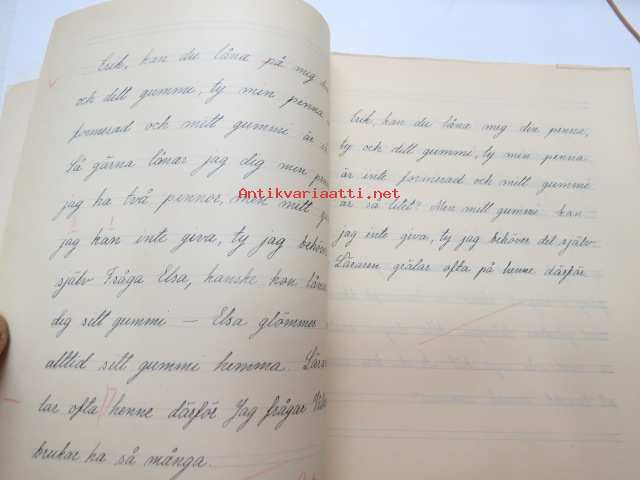 Erik, kan du låna på mig
och ditt gummi, ty min penna
formerad och mitt gummi är
Så gärna lånar jag dig min
jag ha två pennor, men mitt
jag kan inte giva, ty jag behöver
själv Fråga Elsa, kanske hon
dig sitt gummi — Elsa glömmer
alltid sitt gummi hemma.
lar ofta henne därför Jag frågar
brukar ha så många.
Erik, kan du låna mig din penna,
ty och ditt gummi, ty min penna
är inte formerad och mitt gummi
är så litet? Men mitt gummi kan
jag inte giva, ty jag behöver det själv.
Läraren grälar ofta på henne därför
Antikvariaatti.net